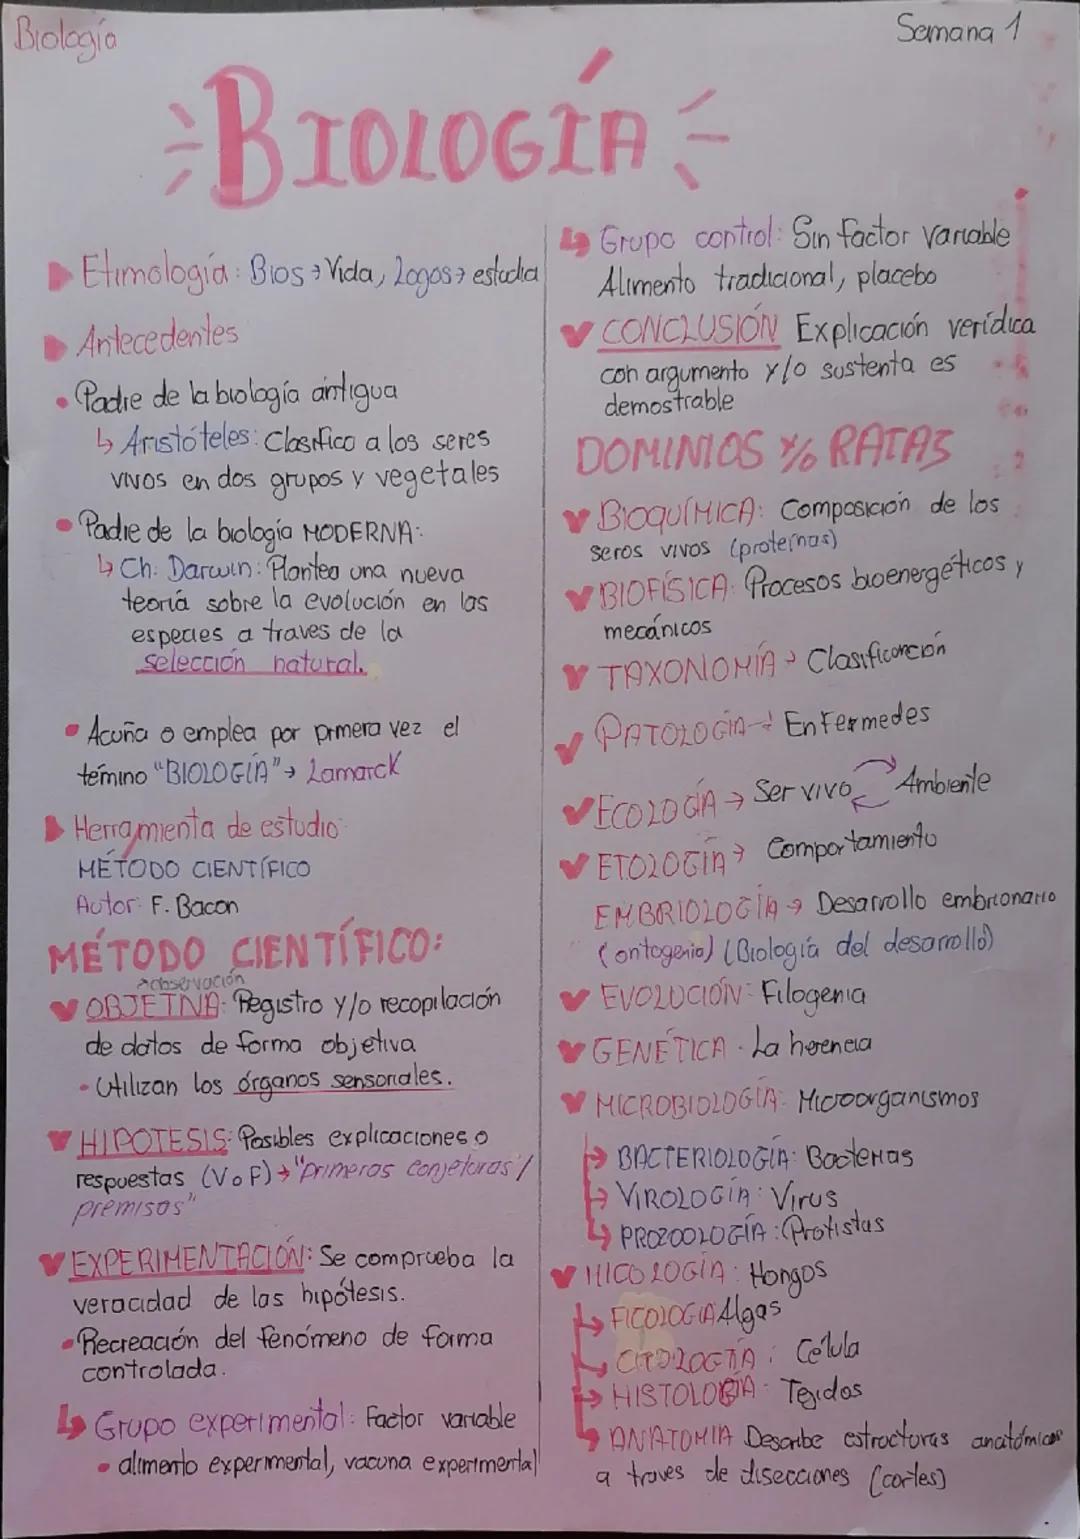 Biología
Semana 1
BIOLOGÍA
Etimología: Bios → Vida, Logos → estudia
Antecedentes
• Padre de la biología antigua
↳ Aristóteles: Clasifico a los seres
vivos en dos grupos y vegetales
• Padre de la biología MODERNA:
↳ Ch. Darwin: Planteo una nueva
teoría sobre la evolución en las
especies a traves de la
selección natural.
• Acuña o emplea por primera vez el
término "BIOLOGÍA" → Lamarck
Herramienta de estudio:
MÉTODO CIENTÍFICO
Autor: F. Bacon
MÉTODO CIENTÍFICO:
observación
OBJETIVA: Registro y/o recopilación
de datos de forma objetiva
• Utilizan los órganos sensoriales.
HIPOTESIS: Posibles explicaciones o
respuestas (V o F) → "primeras conjeturas /
premisas"
EXPERIMENTACIÓN: Se comprueba la
veracidad de las hipótesis.
• Recreación del fenómeno de forma
controlada.
↳ Grupo experimental: Factor variable
• alimento experimental, vacuna experimental
↳ Grupo control: Sin factor variable
Alimento tradicional, placebo
CONCLUSIÓN Explicación verídica
con argumento y/o sustenta es
demostrable
DOMINIOS y/o RAMAS
BIOQUÍMICA: Composición de los
seros vivos (proteínas)
BIOFÍSICA: Procesos bioenergéticos y
mecánicos
TAXONOMÍA → Clasificación
PATOLOGÍA → Enfermedes
ECOLOGÍA → Ser vivo Ambiente
ETOLOGÍA → Comportamiento
EMBRIOLOGÍA → Desarrollo embrionario
(ontogenia) (Biología del desarrollo)
EVOLUCIÓN: Filogenia
GENÉTICA - La herencia
MICROBIOLOGÍA: Microorganismos
↳ BACTERIOLOGÍA: Bacterias
↳ VIROLOGÍA: Virus
↳ PROZOOLOGÍA: Protistas
MICOLOGÍA: Hongos
↳ FICOLOGIA Algas
↳ CITOLOGÍA: Célula
↳ HISTOLOGÍA - Tejidos
↳ ANATOMIA Describe estructuras anatómicas
a traves de disecciones (cortes)